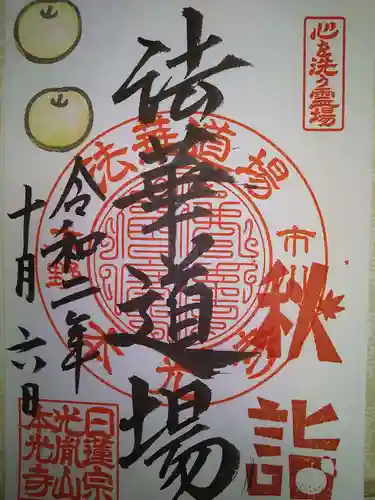 心を洗う霊場
法華道場
令和二年
十月六日
秋詣
法華道場
市
日蓮宗
光胤山
本光寺